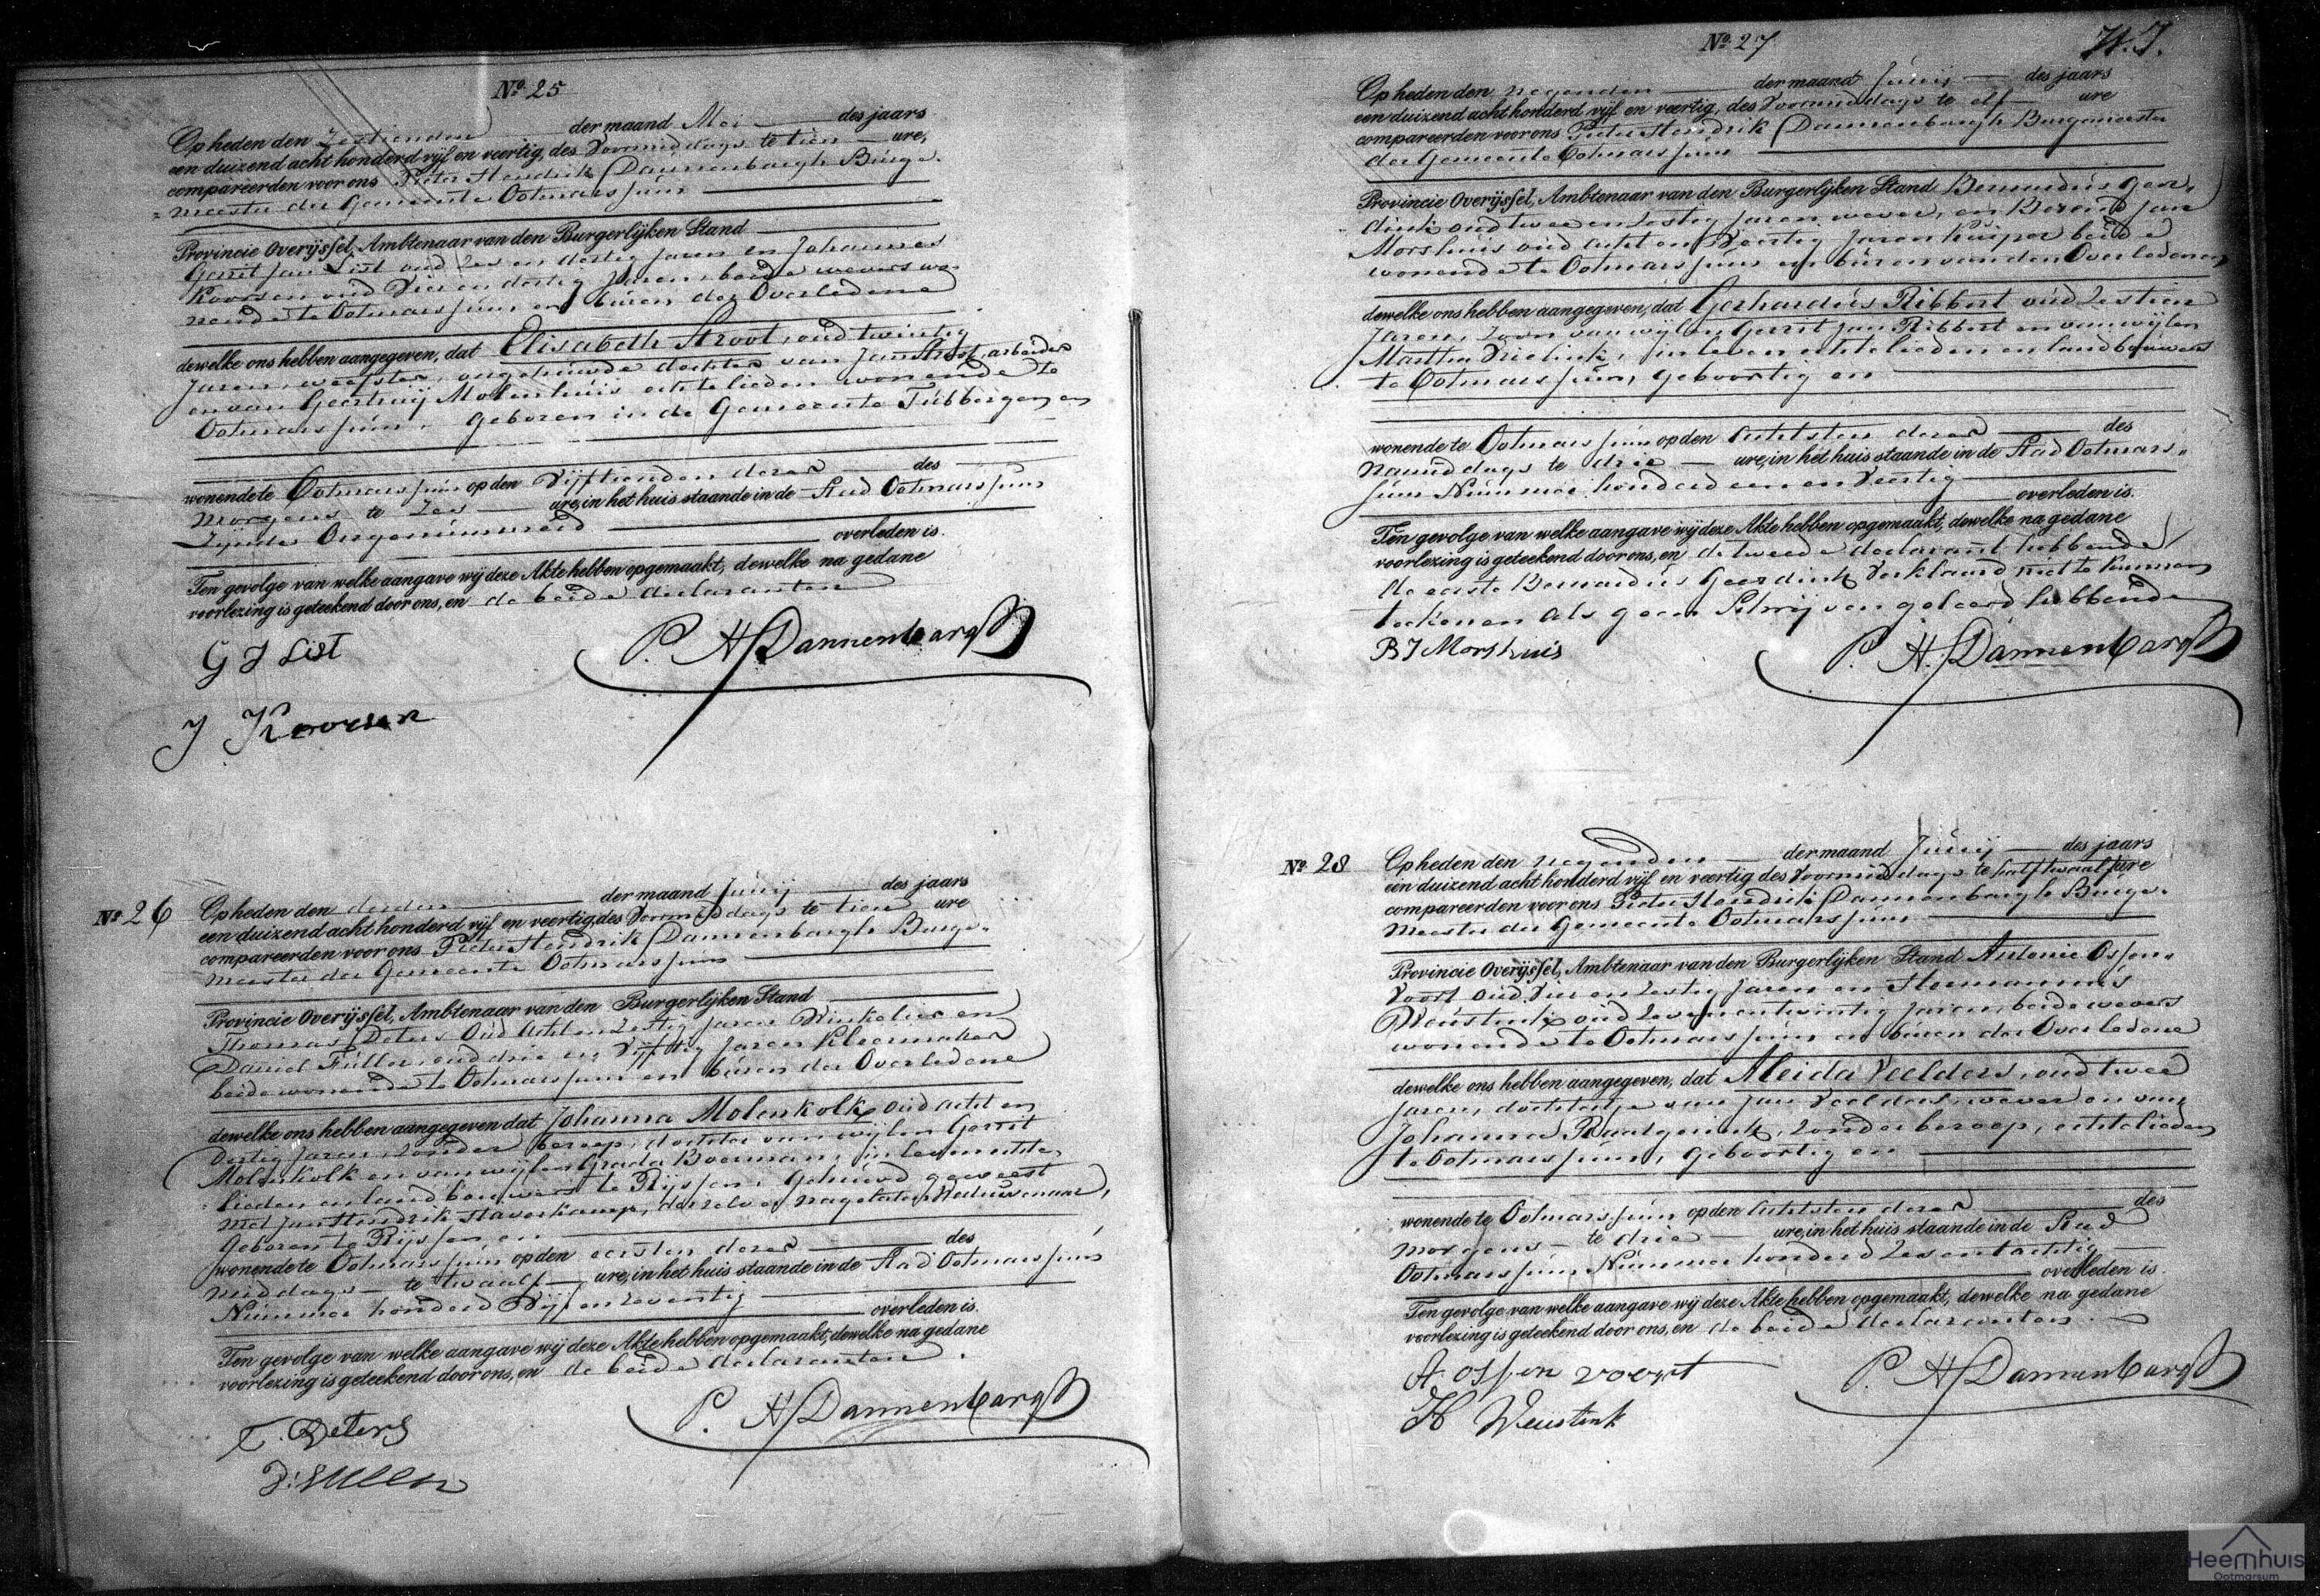 No 25
Op heden den Zestienden der maand Mei des jaars
een duizend acht honderd vijf en veertig, des Voormiddags te tien ure,
compareerden voor ons Pieter Hendrik Dannenbargh Burge-
meester der Gemeente Ootmarssum
Provincie Overijssel, Ambtenaar van den Burgerlijken Stand
Gerrit Jan List oud Zes en dertig Jaren en Johannes
Koorsen oud Vier en dertig Jaren beide wevers wo-
nende te Ootmarssum en buren der Overledene
dewelke ons hebben aangegeven, dat Elisabeth Stroot, oud twintig
Jaren, weefster, ongehuwde dochter van Jan Stroot, arbeider
en van Geertruij Molenhuis echtelieden wonende te
Ootmarssum, geboren in de Gemeente Tubbergen, en
wonende te Ootmarssum op den Vijftienden dezer des
morgens te Zes ure, in het huis staande in de Stad Ootmarssum
Zijnde Ongenummerd overleden is.
Ten gevolge van welke aangave wij deze Akte hebben opgemaakt, dewelke na gedane
voorlezing is geteekend door ons, en de beide declaranten
G J List
P. H. Dannenbargh
J Koorsen
No 26
Op heden den derden der maand Junij des jaars
een duizend acht honderd vijf en veertig, des Voormiddags te tien ure
compareerden voor ons Pieter Hendrik Dannenbargh Burge-
meester der Gemeente Ootmarssum
Provincie Overijssel, Ambtenaar van den Burgerlijken Stand
Thomas Peters Oud Acht en Zestig Jaren Winkelier en
David Füller, oud drie en Vijftig Jaren Kleermaker
beide wonende te Ootmarssum en buren der Overledene
dewelke ons hebben aangegeven dat Johanna Molenkolk, oud acht en
dertig Jaren, zonder beroep, dochter van wijlen Gerrit
Molenkolk en van wijlen Grada Boerman, in leven echte-
lieden en landbouwers te Rijssen, Gehuwd geweest
met Jan Hendrik Haverkamp, derzelver nagelaten Weduwenaar,
Geboren te Rijssen, en
wonende te Ootmarssum op den eersten dezer des
middags te twaalf ure, in het huis staande in de Stad Ootmarssum
Nummer honderd Vijf en Zeventig overleden is.
Ten gevolge van welke aangave wij deze Akte hebben opgemaakt, dewelke na gedane
voorlezing is geteekend door ons, en de beide declaranten.
T. Peters
P. H. Dannenbargh
No 27
Op heden den negenden der maand Junij des jaars
een duizend acht honderd vijf en veertig, des Voormiddags te elf ure
compareerden voor ons Pieter Hendrik Dannenbargh Burgemeester
der Gemeente Ootmarssum
Provincie Overijssel, Ambtenaar van den Burgerlijken Stand Bernardus Geer-
dink oud twee en Zestig Jaren wever, en Berend Jan
Morshuis oud Acht en Veertig Jaren Kuiper beide
wonende te Ootmarssum en buren van den Overledenen
dewelke ons hebben aangegeven, dat Gerhardus Ribbert oud Zestien
Jaren, Zoon van wijlen Gerrit Jan Ribbert en van wijlen
Martha Vrielink, in leven echtelieden en landbouwers
te Ootmarssum, geboortig en
wonende te Ootmarssum op den Achtsten dezer des
namiddags te drie ure, in het huis staande in de Stad Ootmars-
sum Nummer honderd een en Veertig overleden is.
Ten gevolge van welke aangave wij deze Akte hebben opgemaakt, dewelke na gedane
voorlezing is geteekend door ons, en de tweede declarant hebbende
de eerste Bernardus Geerdink Verklaard niet te kunnen
teekenen als geen Schrijven geleerd hebbende
B J Morshuis
P. H. Dannenbargh
No 28
Op heden den negenden der maand Junij des jaars
een duizend acht honderd vijf en veertig des Voormiddags te half twaalf ure
compareerden voor ons Pieter Hendrik Dannenbargh Burge-
meester der Gemeente Ootmarssum
Provincie Overijssel, Ambtenaar van den Burgerlijken Stand Antonie Ossen-
voort oud Vier en Zestig Jaren en Hermannus
Weustink oud Zeven en twintig Jaren, beide wevers
wonende te Ootmarssum en buren der Overledene
dewelke ons hebben aangegeven, dat Aleida Veelders, oud twee
Jaren, dochtertje van Jan Veelders, wever en van
Johanna Raatgerink, zonder beroep, echtelieden
te Ootmarssum, geboortig en
wonende te Ootmarssum op den Achtsten dezer des
morgens te drie ure, in het huis staande in de Stad
Ootmarssum Nummer honderd Zeven tachtig
overleden is.
Ten gevolge van welke aangave wij deze Akte hebben opgemaakt, dewelke na gedane
voorlezing is geteekend door ons, en de beide declaranten.
A. ossen voort
P. H. Dannenbargh
H Weustink
Heemhuis
Ootmarsum